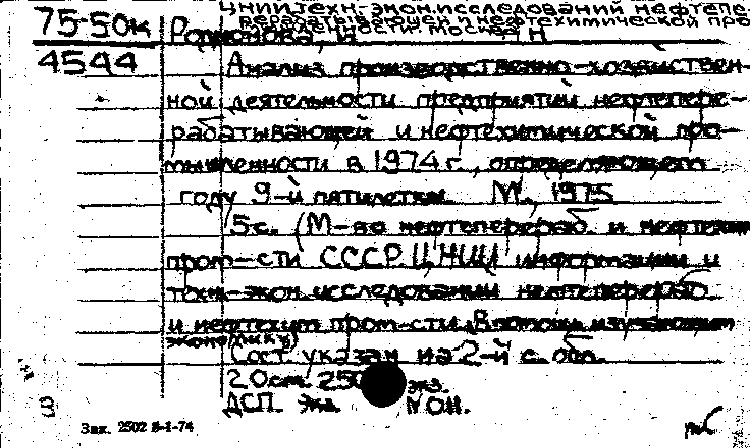 ЦНИИ техн.-экон. исследований нефтепе-
рерабатывающей и нефтехимической про
мышленности. Москва
75-50к
4544
Родионова, И. Н
Анализ производственно-хозяйствен-
ной деятельности предприятий нефтепере-
рабатывающей и нефтехимической про-
мышленности в 1974 г., определяющем
году 9-й пятилетки. М., 1975
5 с. (М-во нефтеперераб. и нефтехим
пром-сти СССР. ЦНИИ информации и
техн.-экон. исследований нефтеперераб.
и нефтехим пром-сти. В помощь изучающим
экономику)
Сост. указан на 2-й с. обл.
20см. 250 экз.
ДСП. Экз.
Зак. 2502 8-I-74